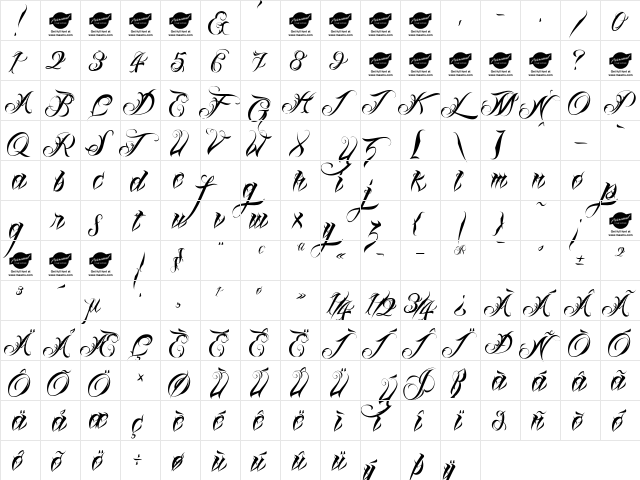 ! & ' ' - ' / 0
1 2 3 4 5 6 7 8 9 ?
A B C D E F G H I J K L M N O P
Q R S T U V W X Y Z [ \ ] ^ _ `
a b c d e f g h i j k l m n o p
q r s t u v w x y z { | } ~ ¡
¨ © ª « ¬ - ® ¯ ° ± ²
³ ´ µ · ¸ ¹ º » 1/4 1/2 3/4 ¿ À Á Â Ã
Ä Å Æ Ç È É Ê Ë Ì Í Î Ï Ð Ñ Ò Ó
Ô Õ Ö × Ø Ù Ú Û Ü Ý Þ ß à á â ã
ä å æ ç è é ê ë ì í î ï ð ñ ò ó
ô õ ö ÷ ø ù ú û ü ý þ ÿ